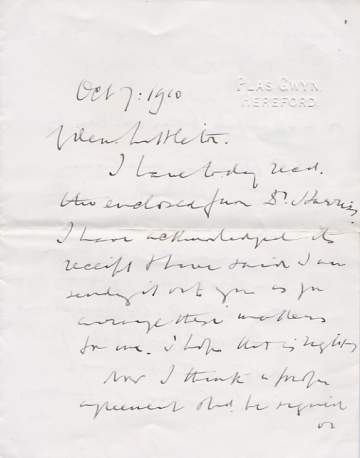 PLAS GWYN,
HEREFORD.
Oct 7: 1910
Dear Littleton.
I have today read
the enclosed from Dr. Harris.
I have acknowledged its
receipt & have said I am
sending it on to you as you
arrange these matters
for me. I hope that is right.
Now I think a proper
agreement shd. be signed
or